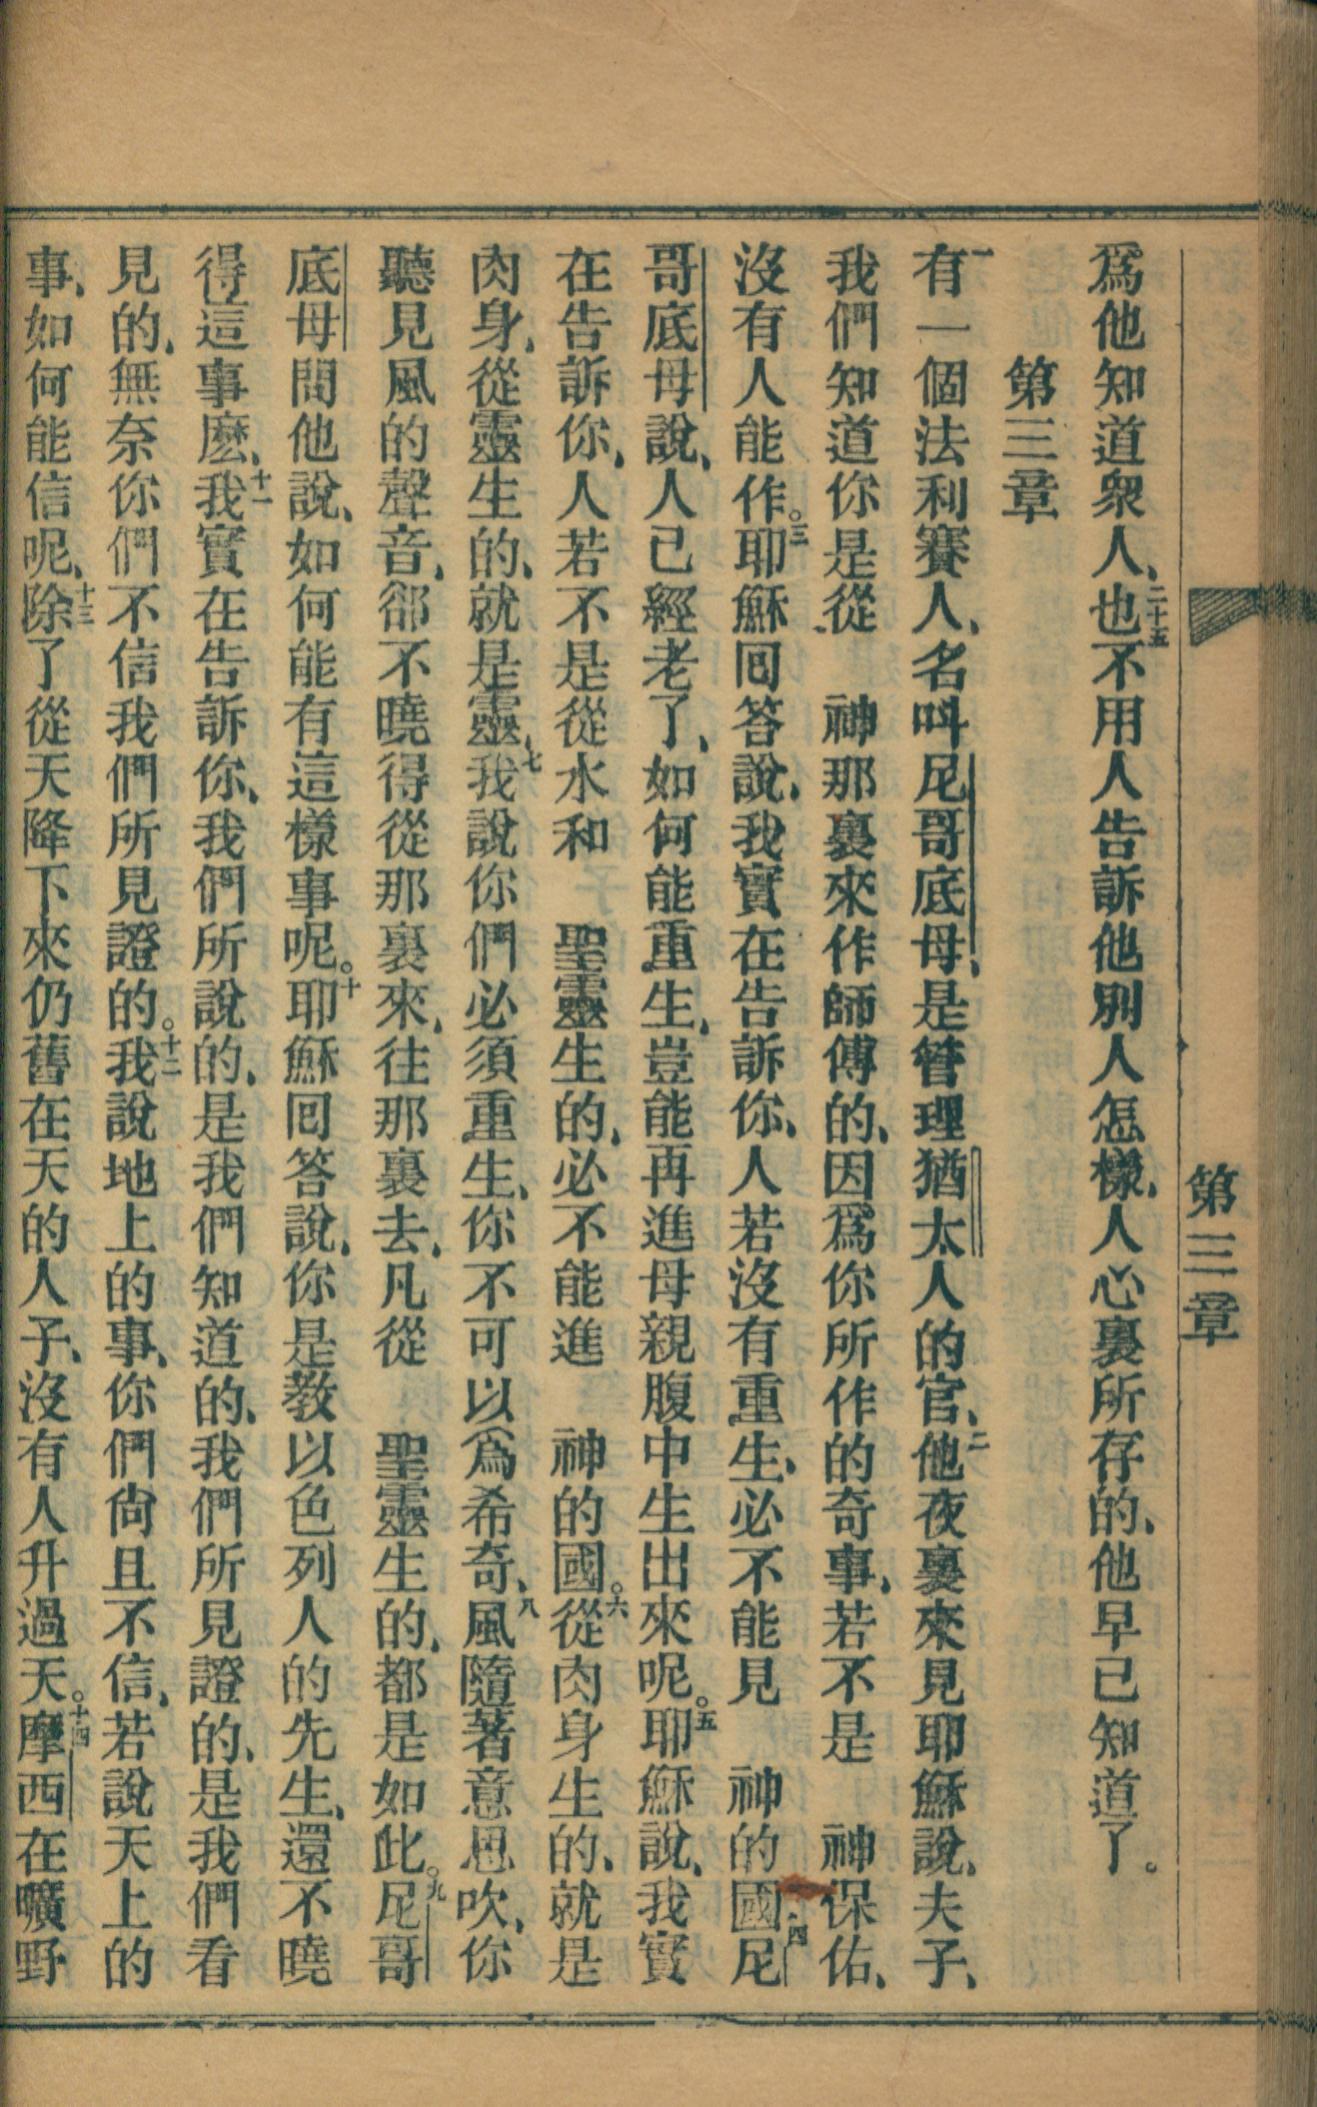 第三章
爲他知道衆人、二十五也不用人告訴他別人怎樣、人心裏所存的、他早已知道了。
第三章
一有一個法利賽人、名叫尼哥底母、是管理猶太人的官、二他夜裏來見耶穌說、夫子、
我們知道你是從　神那裏來作師傅的、因爲你所作的奇事、若不是　神保佑、
沒有人能作。三耶穌囘答說、我實在告訴你、人若沒有重生、必不能見　神的國、四尼
哥底母說、人已經老了、如何能重生、豈能再進母親腹中生出來呢。五耶穌說、我實
在告訴你、人若不是從水和　聖靈生的、必不能進　神的國。六從肉身生的、就是
肉身、從靈生的、就是靈、七我說你們必須重生、你不可以爲希奇、八風隨著意思吹、你
聽見風的聲音、郤不曉得從那裏來、往那裏去、凡從　聖靈生的、都是如此。九尼哥
底母問他說、如何能有這樣事呢。十耶穌囘答說、你是教以色列人的先生、還不曉
得這事麽、十一我實在告訴你、我們所說的、是我們知道的、我們所見證的、是我們看
見的、無奈你們不信我們所見證的。十二我說地上的事、你們尙且不信、若說天上的
事、如何能信呢、十三除了從天降下來仍舊在天的人子、沒有人升過天。十四摩西在曠野